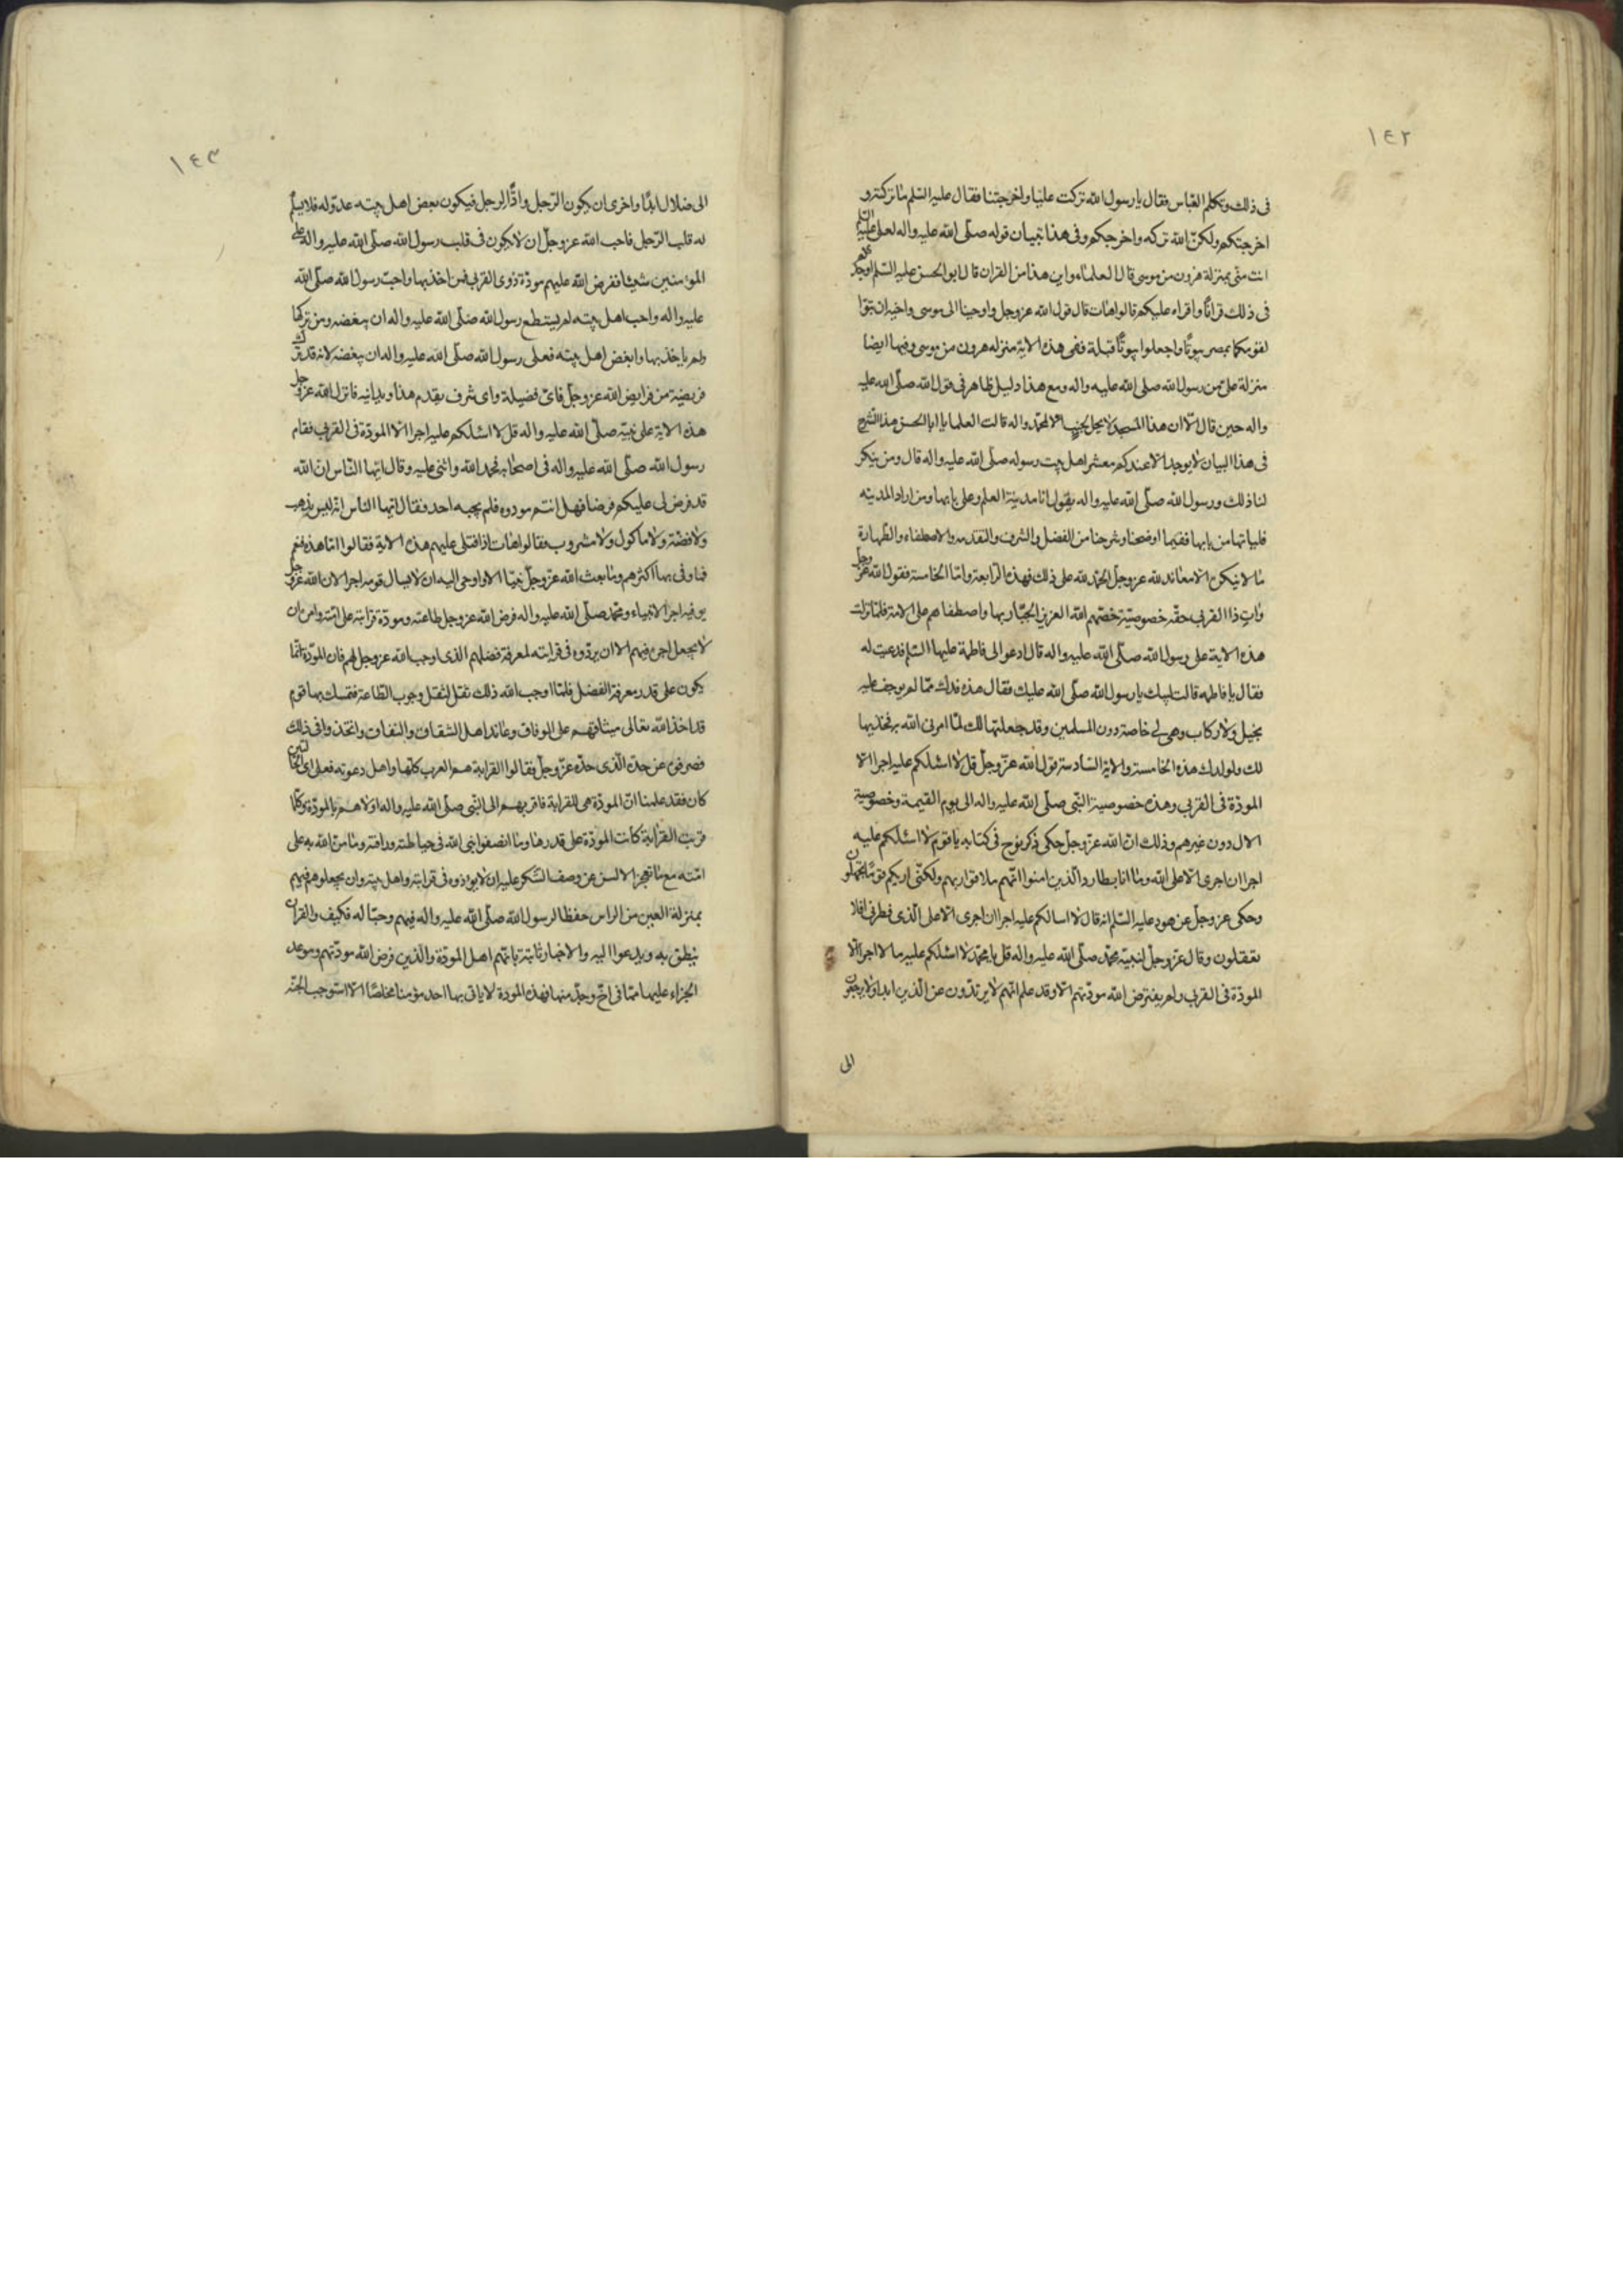 ١٤٢
فى ذلك وتكلم العبّاس فقال يا رسول الله تركت عليّا واخرجتنا فقال عليه السّلم ما تركته و
اخرجتكم ولكنّ الله تركه واخرجكم وفى هذا تبيان قوله صلّى الله عليه واله لعلى عليه السلم
انت منّى بمنزلة هرون من موسى قال العلماء واين هذا من القران قال ابو الحسن عليه السّلم اوجدكم
فى ذلك قرانًا واقراه عليكم قالوا هات قال قول الله عز وجل واوحينا الى موسى واخيه ان تبوّا
لقومكما بمصر بيوتًا واجعلوا بيوتكم قبلة ففى هذه الاية منزله هرون من موسى وفيها ايضا
منزلة علىّ من رسول الله صلى الله عليه واله ومع هذا دليل ظاهر فى قول الله صلّى الله عليه
واله حين قال الّا ان هذا المسجد لا يحل لجنبٍ الا لمحمّد واله قالت العلما يا ابا الحسن هذا الشرح
فى هذا البيان لا يوجد الا عندكم معشر اهل بيت رسوله صلّى الله عليه واله قال ومن ينكر
لنا ذلك ورسول الله صلّى الله عليه واله يقول انا مدينة العلم وعلى بابها ومن اراد المدينه
فلياتها من بابها ففيما اوضحنا وشرحنا من الفضل والشرف والتقدمه والاصطفاء والطّهارة
ما لا ينكره الا معاند لله عز وجل الحمد لله على ذلك فهذه الرّابعة وامّا الخامسة فقول الله عز وجل
وات ذا القربى حقّه خصوصيّة خصّهم الله العزيز الجبّار بها واصطفاهم على الامة فلمّا نزلت
هذه الاية على رسول الله صلّى الله عليه واله قال ادعوا لى فاطمة عليها السّلم فدعيت له
فقال يا فاطمه قالت لبيك يا رسول الله صلّى الله عليك فقال هذه فدك ممّا لم يوجف عليه
بخيل ولا ركاب وهى لى خاصّة دون المسلمين وقد جعلتها لك لمّا امرنى الله به فخذيها
لك ولولدك هذه الخامسة والاية السّادسة قول الله عزّ وجلّ قل لا اسئلكم عليه اجرا الّا
المودّة فى القربى وهذه خصوصية النّبى صلّى الله عليه واله الى يوم القيمة وخصوصية
الال دون غيرهم وذلك انّ الله عزّ وجلّ حكى ذكر نوح فى كتابه يا قوم لا اسئلكم عليه
اجرا ان اجرى الّا على الله وما انا بطارد الّذين امنوا انّهم ملاقوا ربهم ولكنّى اريكم قومًا تجهلون
وحكى عز وجلّ عن هود عليه السّلم انه قال لا اسالكم عليه اجرا ان اجرى الّا على الّذى فطرنى افلا
تعقلون وقال عزّ وجلّ لنبيّه محمّد صلّى الله عليه واله قل يا محمّد لا اسئلكم عليه مالا اجرا الّا
المودّة فى القربى ولم يفترض الله مودّتهم الّا وقد علم انّهم لا يرتدّون عن الّذين ابدا ولا يرجعون
الى
١٤٣
الى ضلال ابدًا واخرى ان يكون الرّجل وادًّا لرجل فيكون بعض اهل بيته عدوّ له فلا يسلم
له قلب الرّجل فاحب الله عز وجلّ ان لا يكون فى قلب رسول الله صلّى الله عليه واله على
المؤمنين شيئا ففرض الله عليهم مودّة ذوى القربى فمن اخذ بها واحبّ رسول الله صلّى الله
عليه واله واحب اهل بيته لم يستطع رسول الله صلّى الله عليه واله ان يبغضه ومن تركها
ولم ياخذ بها وابغض اهل بيته فعلى رسول الله صلّى الله عليه واله ان يبغضه لانه قد ترك
فريضة من فرايض الله عز وجلّ فاىّ فضيلة واى شرف يقدم هذا ويدانيه فانزل الله عز وجل
هذه الاية على نبيّه صلّى الله عليه واله قل لا اسئلكم عليه اجرا الّا المودّة فى القربى فقام
رسول الله صلّى الله عليه واله فى اصحابه فحمد الله واثنى عليه وقال ايّها النّاس انّ الله
قد فرض لى عليكم فرضا فهل انتم مودوه فلم يجبه احد فقال ايّها النّاس انّه ليس بذهب
ولا فضّة ولا ماكول ولا مشروب فقالوا هات اذا فتلى عليهم هذه الاية فقالوا امّا هذه فنعم
فما وفى بها اكثرهم وما بعث الله عزّ وجلّ نبيّا الا واوحى اليه ان لا يسال قومه اجرا لان الله عز وجل
يوفيه اجر الانبياء ومحمّد صلّى الله عليه واله فرض الله عز وجل طاعته ومودّة قرابته على امّته وامره ان
لا يجعل اجره فيهم الا ان يردّوه فى قرابته لمعرفة فضلهم الذى اوجب الله عز وجل لهم فان المودّة انّما
يكون على قدر معرفة الفضل فلمّا اوجب الله ذلك ثقل لثقل وجوب الطّاعة فتمسك بها قوم
قد اخذ الله تعالى ميثاقهم على الوفاق وعاند اهل الشقاق والنفاق واتخذوا فى ذلك
فصرفوه عن حدّه الّذى حدّه عزّ وجلّ فقالوا القرابة هم العرب كلّها واهل دعوته فعلى اىّ الحالتين
كان فقد علمنا انّ المودّة هى للقرابة فاقربهم الى النّبى صلّى الله عليه واله اولاهم بالمودّة وكلّما
قربت القرابة كانت المودّة على قدرها وما انصفوا نبى الله فى حياطته ورافته وما منّ الله به على
امّته مع ما تعجز الالسن عن وصف الشّكر عليه ان لا يؤذوه فى قرابته واهل بيته وان يجعلوهم فيهم
بمنزلة العين من الراس حفظا لرسول الله صلّى الله عليه واله فيهم وحبّا له فكيف والقران
ينطق به ويدعوا اليه والاخبار ثابتة بانّهم اهل المودّة والّذين فرض الله مودّتهم ووعد
الجزاء عليها فهذه المودة لا ياتى بها احد مؤمنا مخلصًا الّا استوجب الجنّة